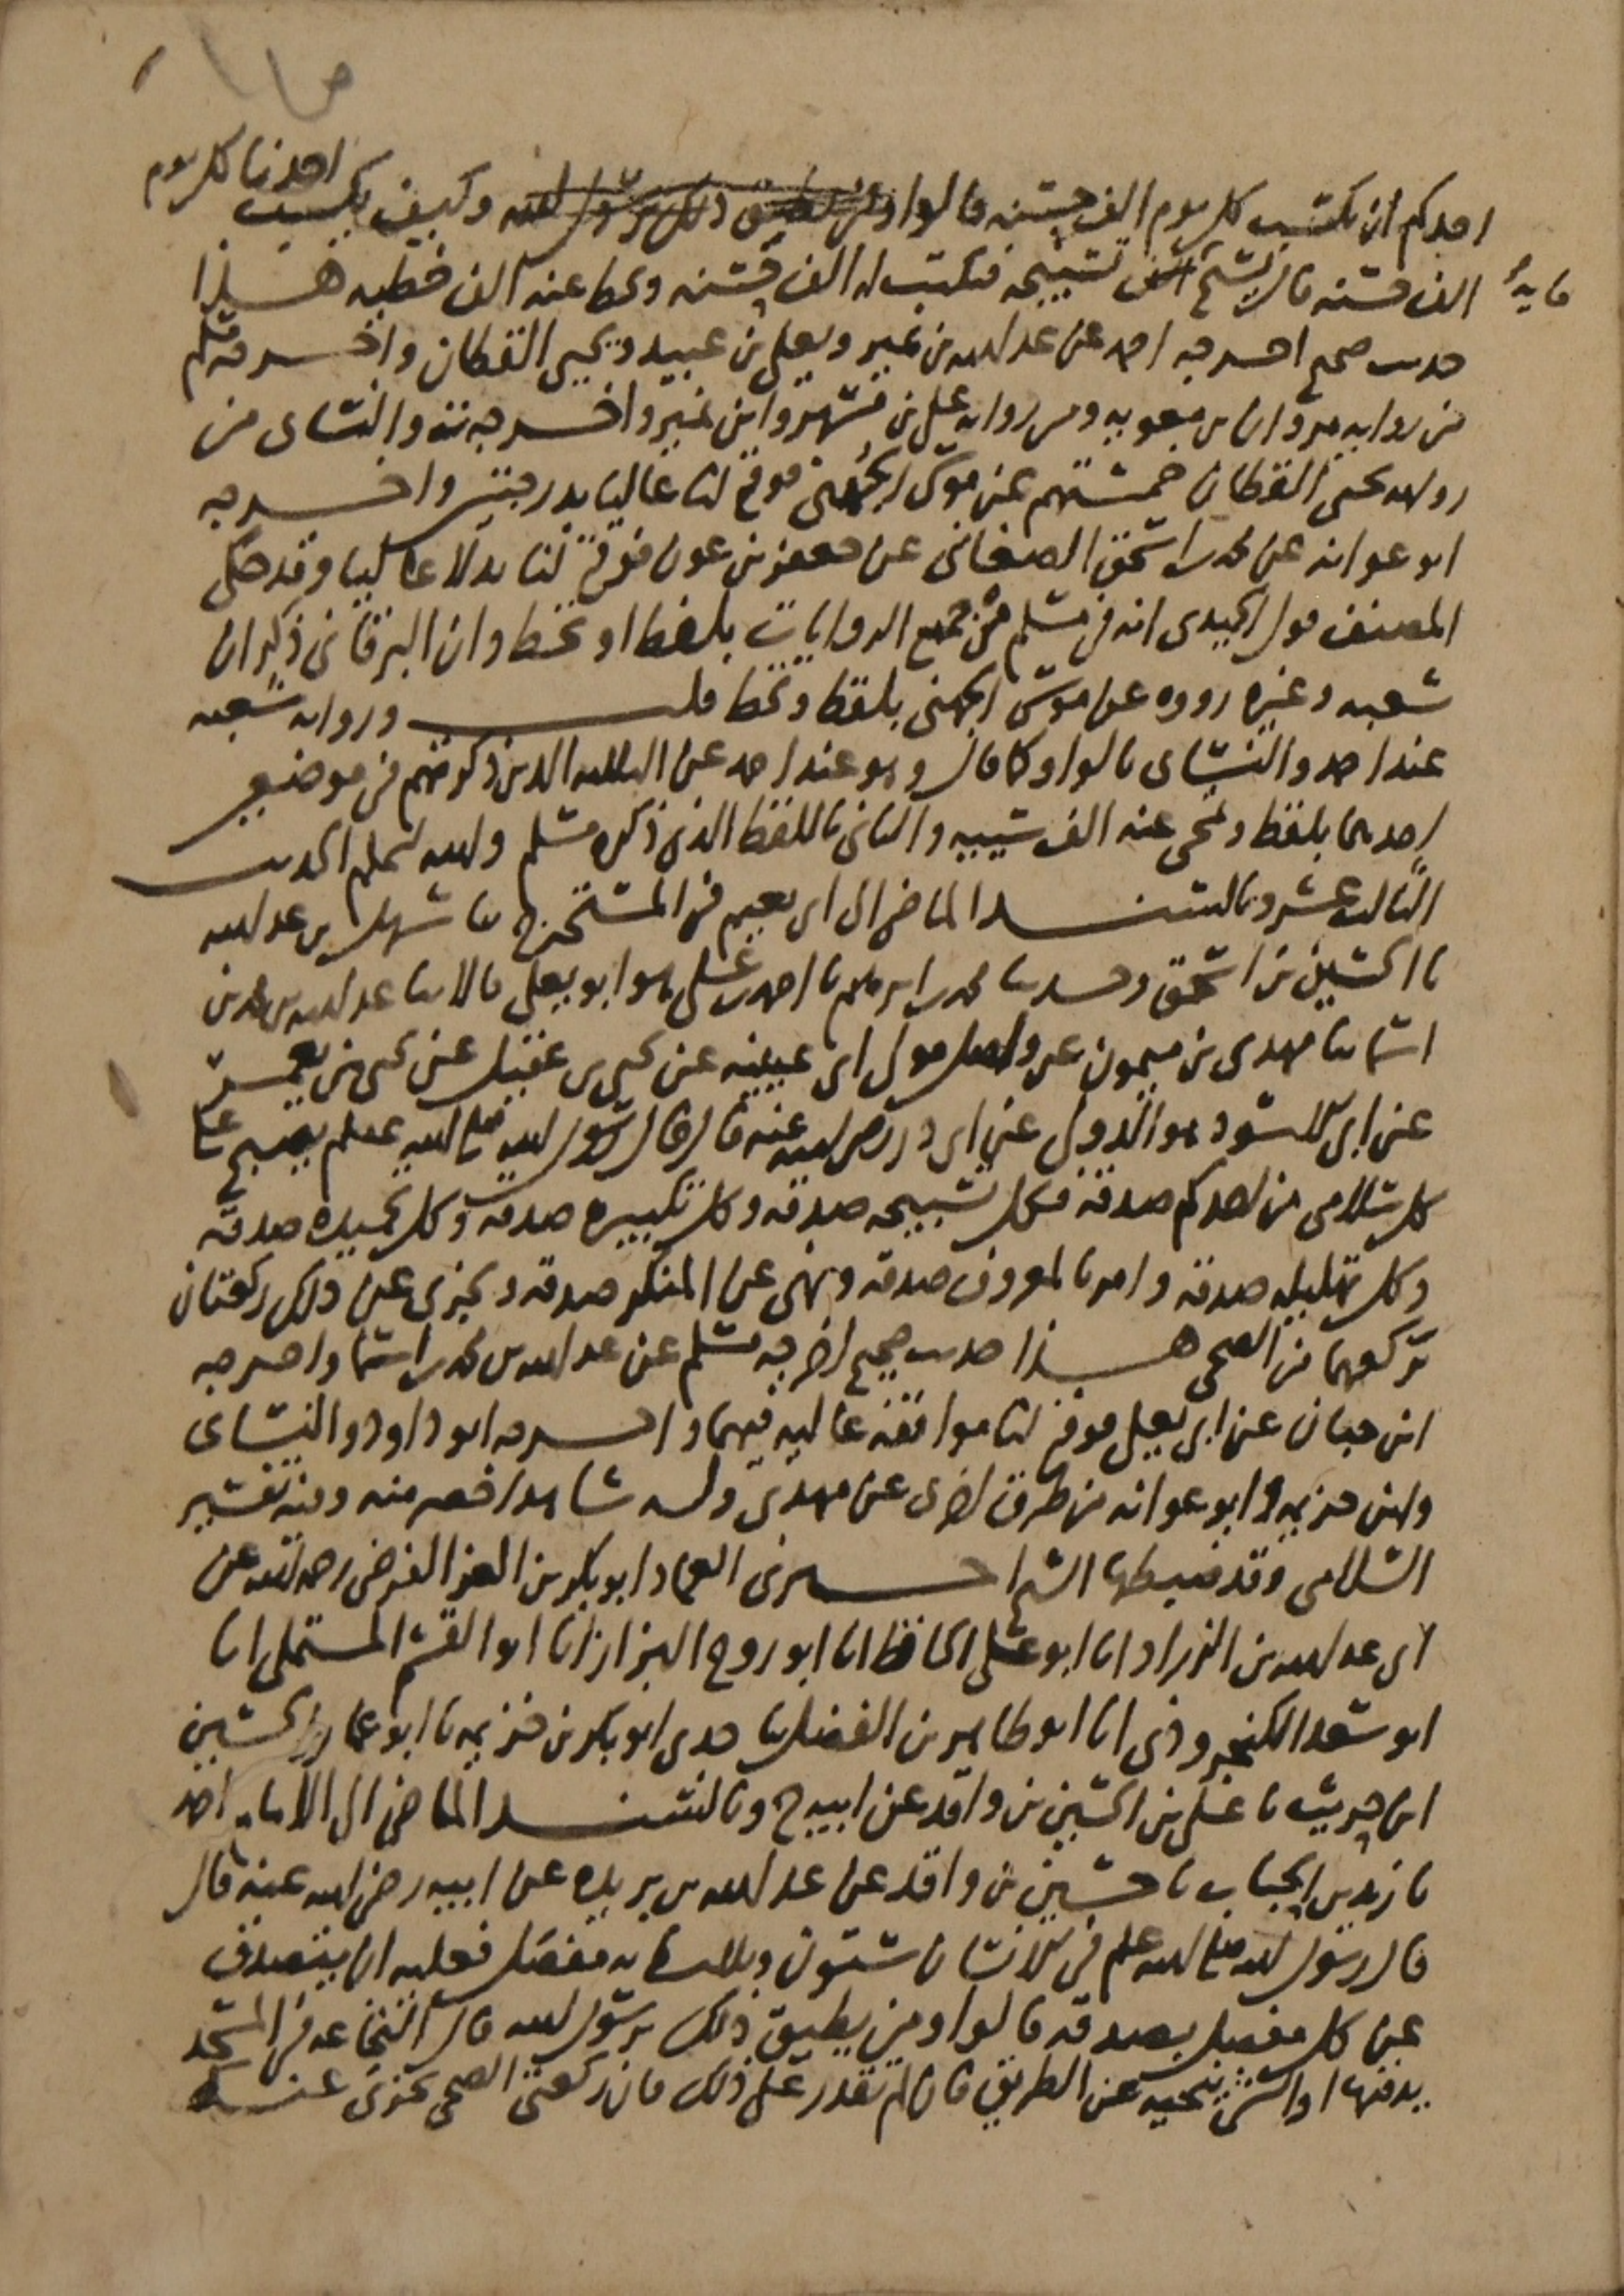 احدكم ان يكتسب كل يوم الف حسنة قالوا ومن يطيق ذلك يرسول الله وكيف يكسب احدنا كل يوم
الف حسنة قال يسبح مايةَ تسبيحه فتكتب له الف حسنه وتحط عنه الف خطيه هذا
حديث صحيح اخرجه احمد عن عبد الله بن نمير ويعلى بن عبيد ويحيى القطان واخرجه مسلم
من روايه مروان بن معويه ومن روايه علي بن مسهر وابن نمير واخرجه ت والنساى من
روايه يحيى القطان خمستهم عن موسى الجهني فوقع لنا عاليا بدرجتين واخرجه
ابو عوانه عن محمد بن اسحق الصغاني عن جعفر بن عون فوقع لنا بدلا عاليا وقد حكى
المصنف قول الحميدى انه في مسلم في جميع الروايات بلفظ او تحط وان البرقاني ذكر ان
شعبه وغيره رووه عن موسى الجهني بلفظ وتحط قلت وروايه شعبه
عند احمد والنساى بالواو كما قال وهو عند احمد عن الثلثه الذين ذكرتهم في موضعين
احدهما بلفظ وتمحى عنه الف سييه والثاني باللفظ الذي ذكره مسلم والله اعلم الحديث
الثالث عشر وبالسند الماضي الى ابي نعيم في المستخرج ثنا سهل بن عبد الله
نا الحسين بن اسحق وحدثنا محمد بن ابرهيم نا احمد بن علي هو ابو يعلى قالا ثنا عبد الله بن محمد بن
اسما ثنا مهدى بن ميمون عن واصل مولى ابي عيينه عن يحيى بن عقيل عن يحيى بن يعمر
عن ابي الاسود هو الدولي عن ابي ذر رضي الله عنه قال قال رسول الله صلى الله عليه وسلم يصبح على
كل سلامى من احدكم صدقه فكل تسبيحه صدقه وكل تكبيره صدقه وكل تحميده صدقه
وكل تهليله صدقه وامر بالمعروف صدقه ونهى عن المنكر صدقه ويجزى عن ذلك ركعتان
تركعهما من الضحى هذا حديث صحيح اخرجه مسلم عن عبد الله بن محمد بن اسما واخرجه
ابن حبان عن ابي يعلى فوقع لنا موافقه عاليه فيهما واخرجه ابو داود والنساى
وابن خزيمه وابو عوانه من طرق اخرى عن مهدي وله شاهد اخصر منه وفيه تفسير
السلامى وقد ضبطها الشيخ اخبرني العماد ابو بكر بن العز الفرضي رحمه الله عن
ابي عبد الله بن الزراد انا ابو علي الحافظ انا ابو روح البزاز انا ابو القسم المستملي انا
ابو سعد الكنجروذي انا ابو طاهر بن الفضل ثنا جدي ابو بكر بن خزيمه نا ابو عمار الحسين
ابن حريث نا علي بن الحسين بن واقد عن ابيه ح وبالسند الماضي الى الامام احمد
نا زيد بن الحباب نا حسين بن واقد عن عبد الله بن بريده عن ابيه رضي الله عنه قال
قال رسول الله صلى الله عليه وسلم في الانسان ستون وثلثمايه مفصل فعليه ان يتصدق
عن كل مفصل بصدقه قالوا ومن يطيق ذلك يرسول الله قال النخاعه في المسجد
يدفنها او الشى ينحيه عن الطريق فان لم تقدر على ذلك فان ركعتي الضحى تجزى عنك